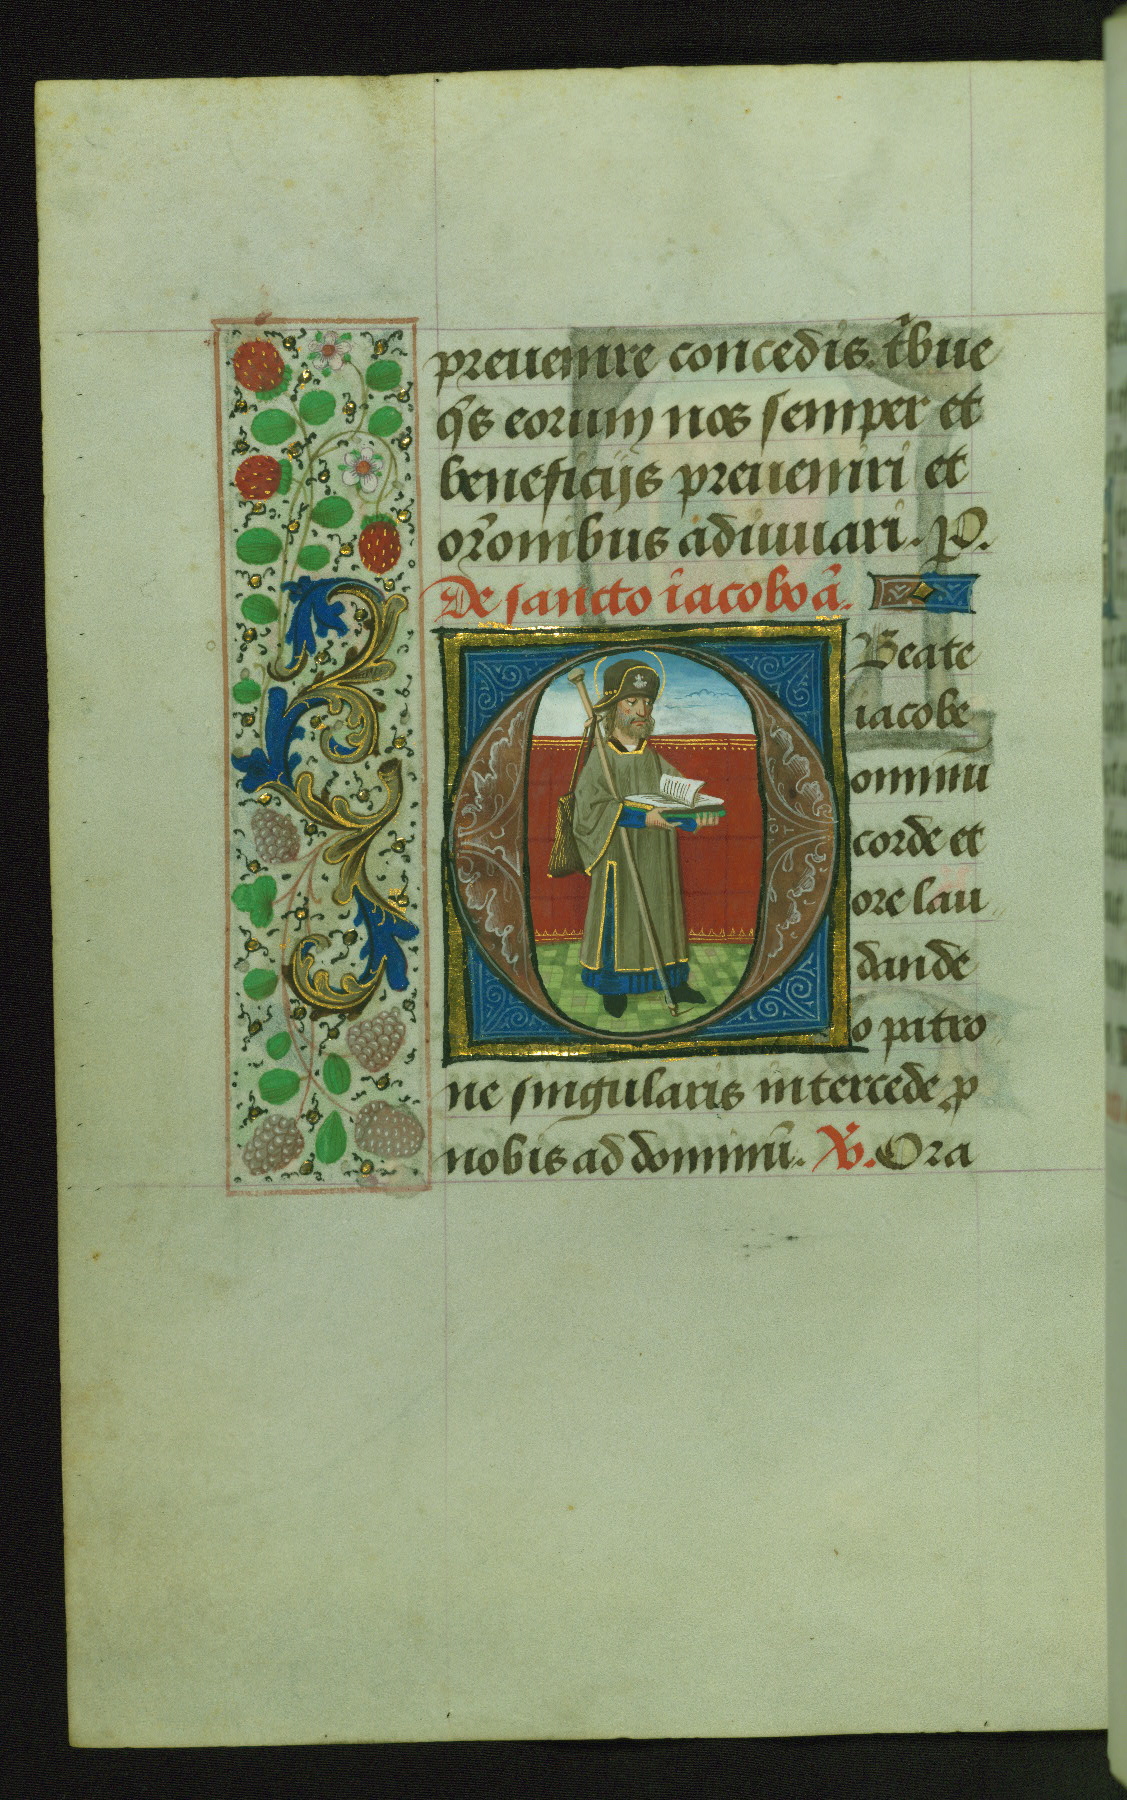 preuenire concedis. t̄bue
q̄s eorum nos semper et
beneficijs preueniri et
or̄onibus adiuuari. P.
De sancto iacobo ā.
O Beate
iacobe
omniu
corde et
ore lau
dande
o patro
ne singularis intercede p
nobis ad dominū. V. Ora